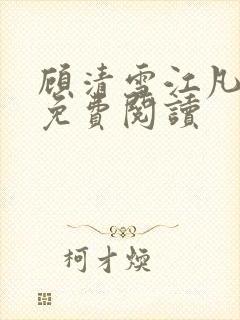 顾清雪江凡
免費閱讀
柯才煥